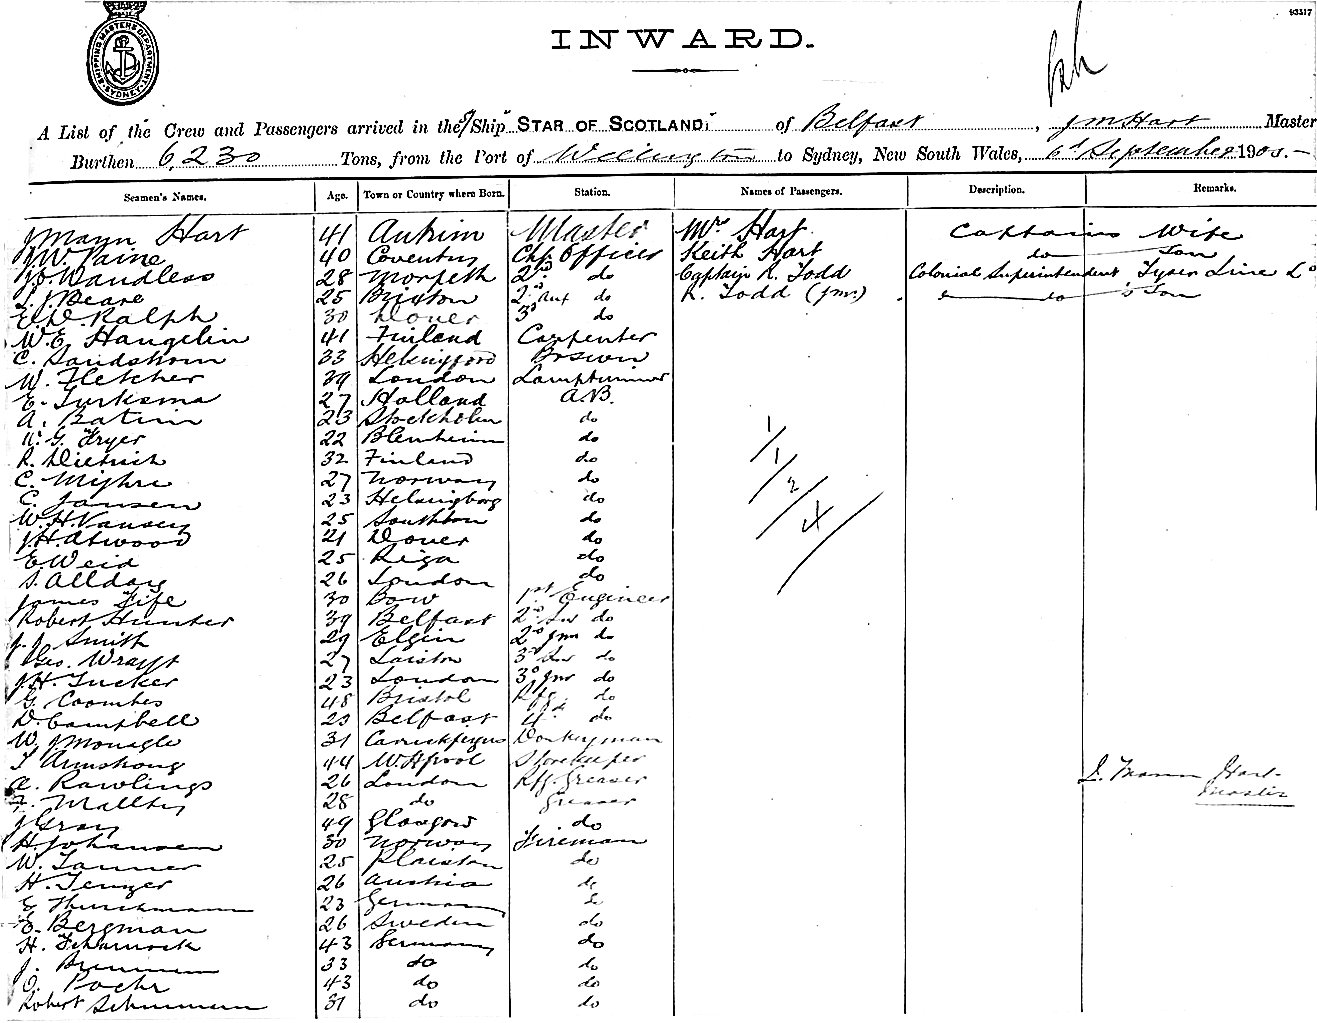 93517
SHIPPING MASTERS DEPARTMENT SYDNEY
INWARD.
A List of the Crew and Passengers arrived in the "Ship" STAR OF SCOTLAND, of Belfast, J M Hart Master
Burthen 6,230 Tons, from the Port of Wellington to Sydney, New South Wales, 6th September 190
Seamen's Names. Age. Town or Country where Born. Station. Names of Passengers. Description. Remarks.
J Mann Hart 41 Antrim Master Mrs Hart Captains Wife
J.W. Paine 40 Coventry Chf Officer Keith Hart do Son
Wandless 28 Morpeth 2nd do Captain R. Todd Colonial Superintendent Tyser Line Lo
J. Beare 25 Brixton 2nd Aux do R. Todd (jnr.) do 's Son
E. W. Ralph 30 Dover 3rd do
W.E. Haugelin 41 Finland Carpenter
C. Sandstrom 33 Helsingford Boswn
W. Fletcher 39 London Lamptrimmer
E. Turksma 27 Holland A.B.
A. Batim 23 Stockholm do
G. Fryer 22 Blenheim do
R. Dietrich 32 Finland do
C. Myhre 27 Norway do
C. Jansen 23 Helsingborg do
W.H. Vansey 25 Southton do
J.H. Atwood 21 Dover do
E Weid 25 Riga do
S. Allday 26 London do
James Fife 30 Bow 1st Engineer
Robert Hunter 39 Belfast 2nd Snr do
J.J. Smith 29 Elgin 2nd jnr do
Geo. Wragt 27 Laiston 3rd Snr do
J.H. Tucker 23 London 3rd jnr do
G. Coombes 48 Bristol Rfg. do
D. Campbell 23 Belfast 4th do
W. J Monagle 31 Carrickfergus Donkeyman
T Armstrong 44 W. Hpool Storekeeper
A. Rawlings 26 London Rfg. Greaser J. Mann Hart
Master
F. Maltby 28 do Greaser
J Gray 49 Glasgow do
H. Johansen 30 Norway Fireman
W. Tanner 25 Plaiston do
H. Tenzer 26 Austria do
E 23 Germany do
E. Bergman 26 Sweden do
H. Scharnock 43 Germany do
J. 33 do do
O. Poehr 43 do do
Robert Schumann 31 do do
1/1/2/4/